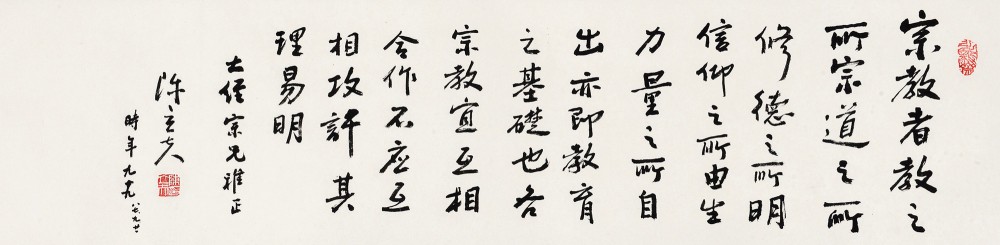 宗教者教之
所宗道之所
修德之所明
信仰之所由生
力量之所自
出亦即教育
之基礎也各
宗教宜互相
合作不应互
相攻訐其
理易明
大经宗兄雅正
陈立夫
時年九十九